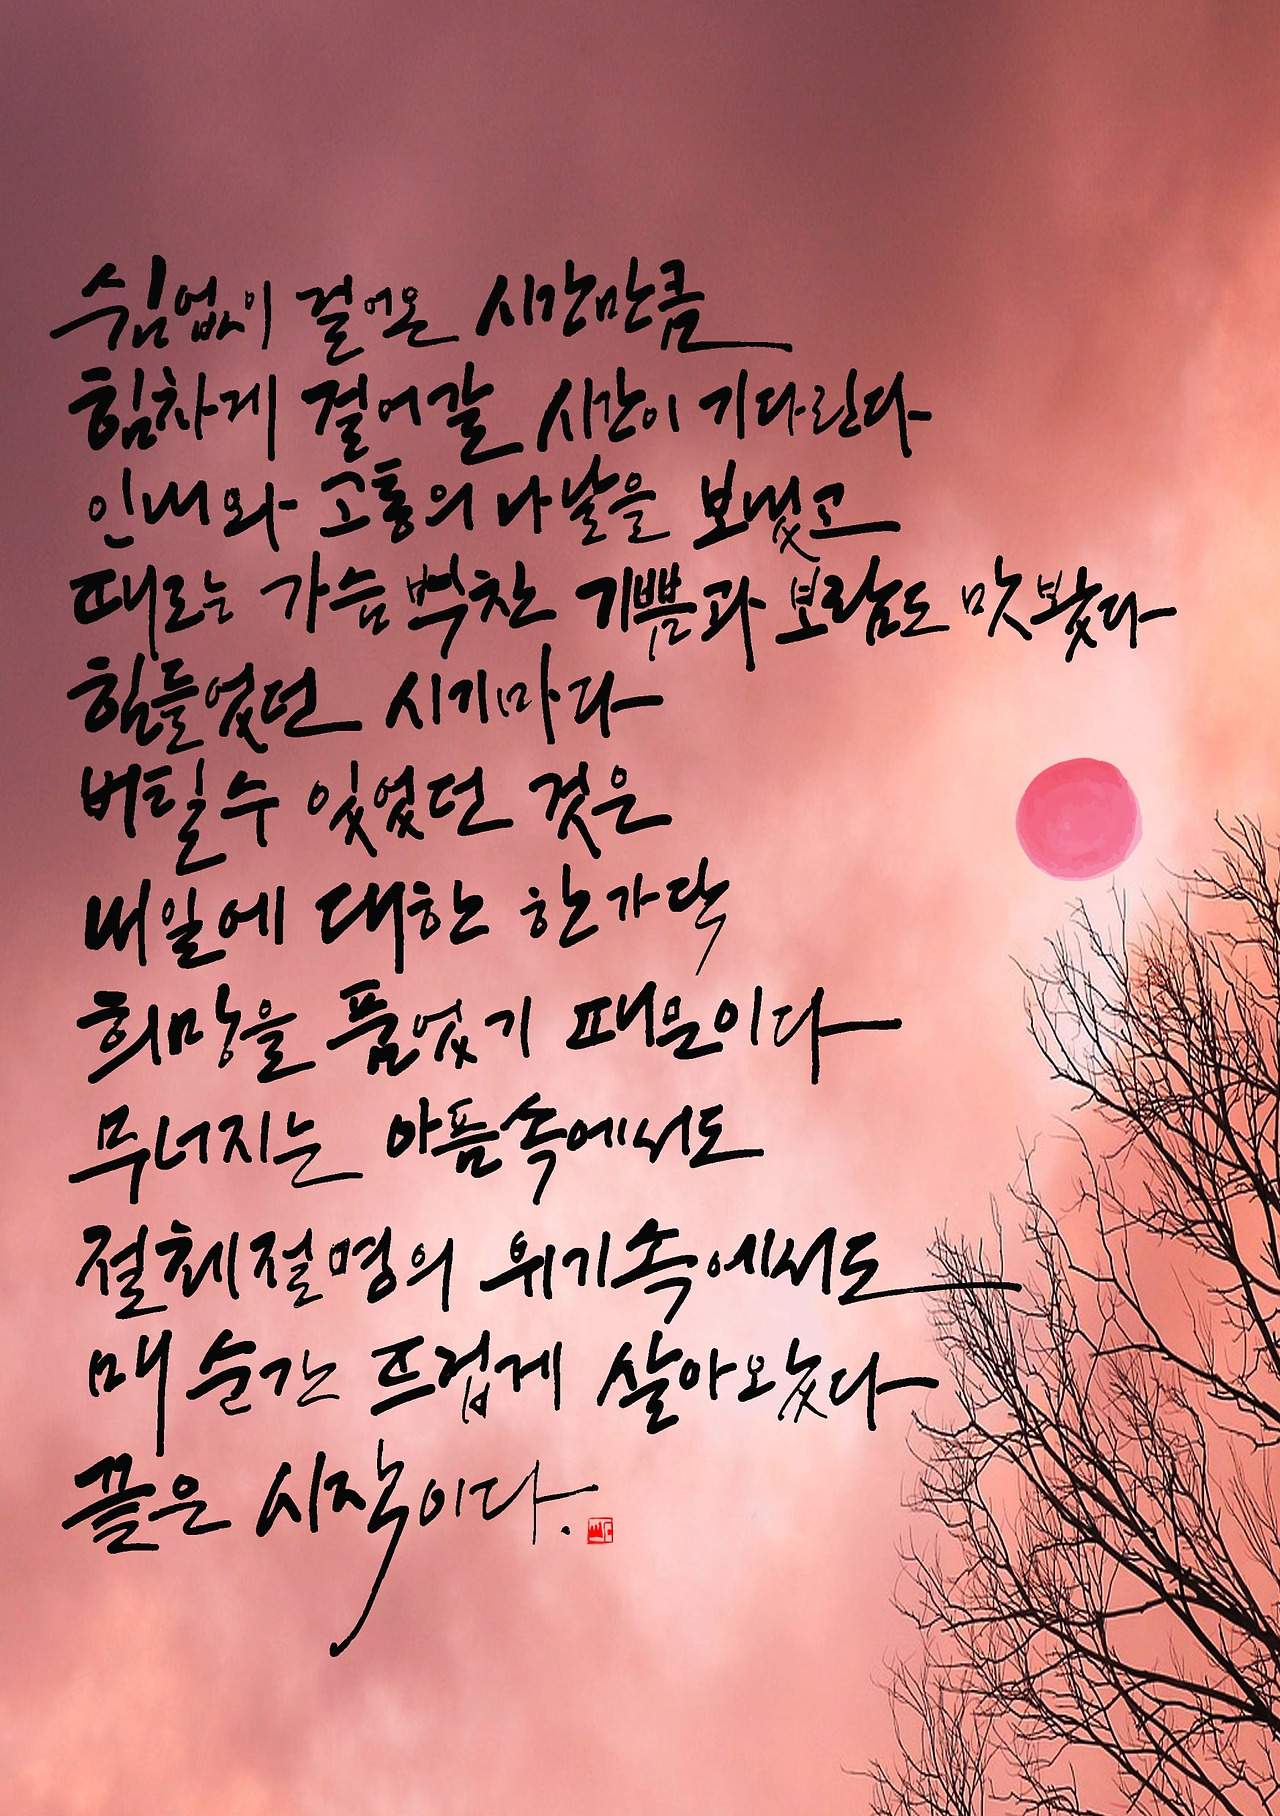 쉼없이 걸어온 시간만큼
힘차게 걸어갈 시간이 기다린다
인내와 고통의 나날을 보냈고
때로는 가슴벅찬 기쁨과 보람도 맛봤다
힘들었던 시기마다
버틸수 있었던 것은
내일에 대한 한가닥
희망을 품었기 때문이다
무너지는 아픔속에서도
절체절명의 위기속에서도
매 순간 뜨겁게 살아왔다
끝은 시작이다.